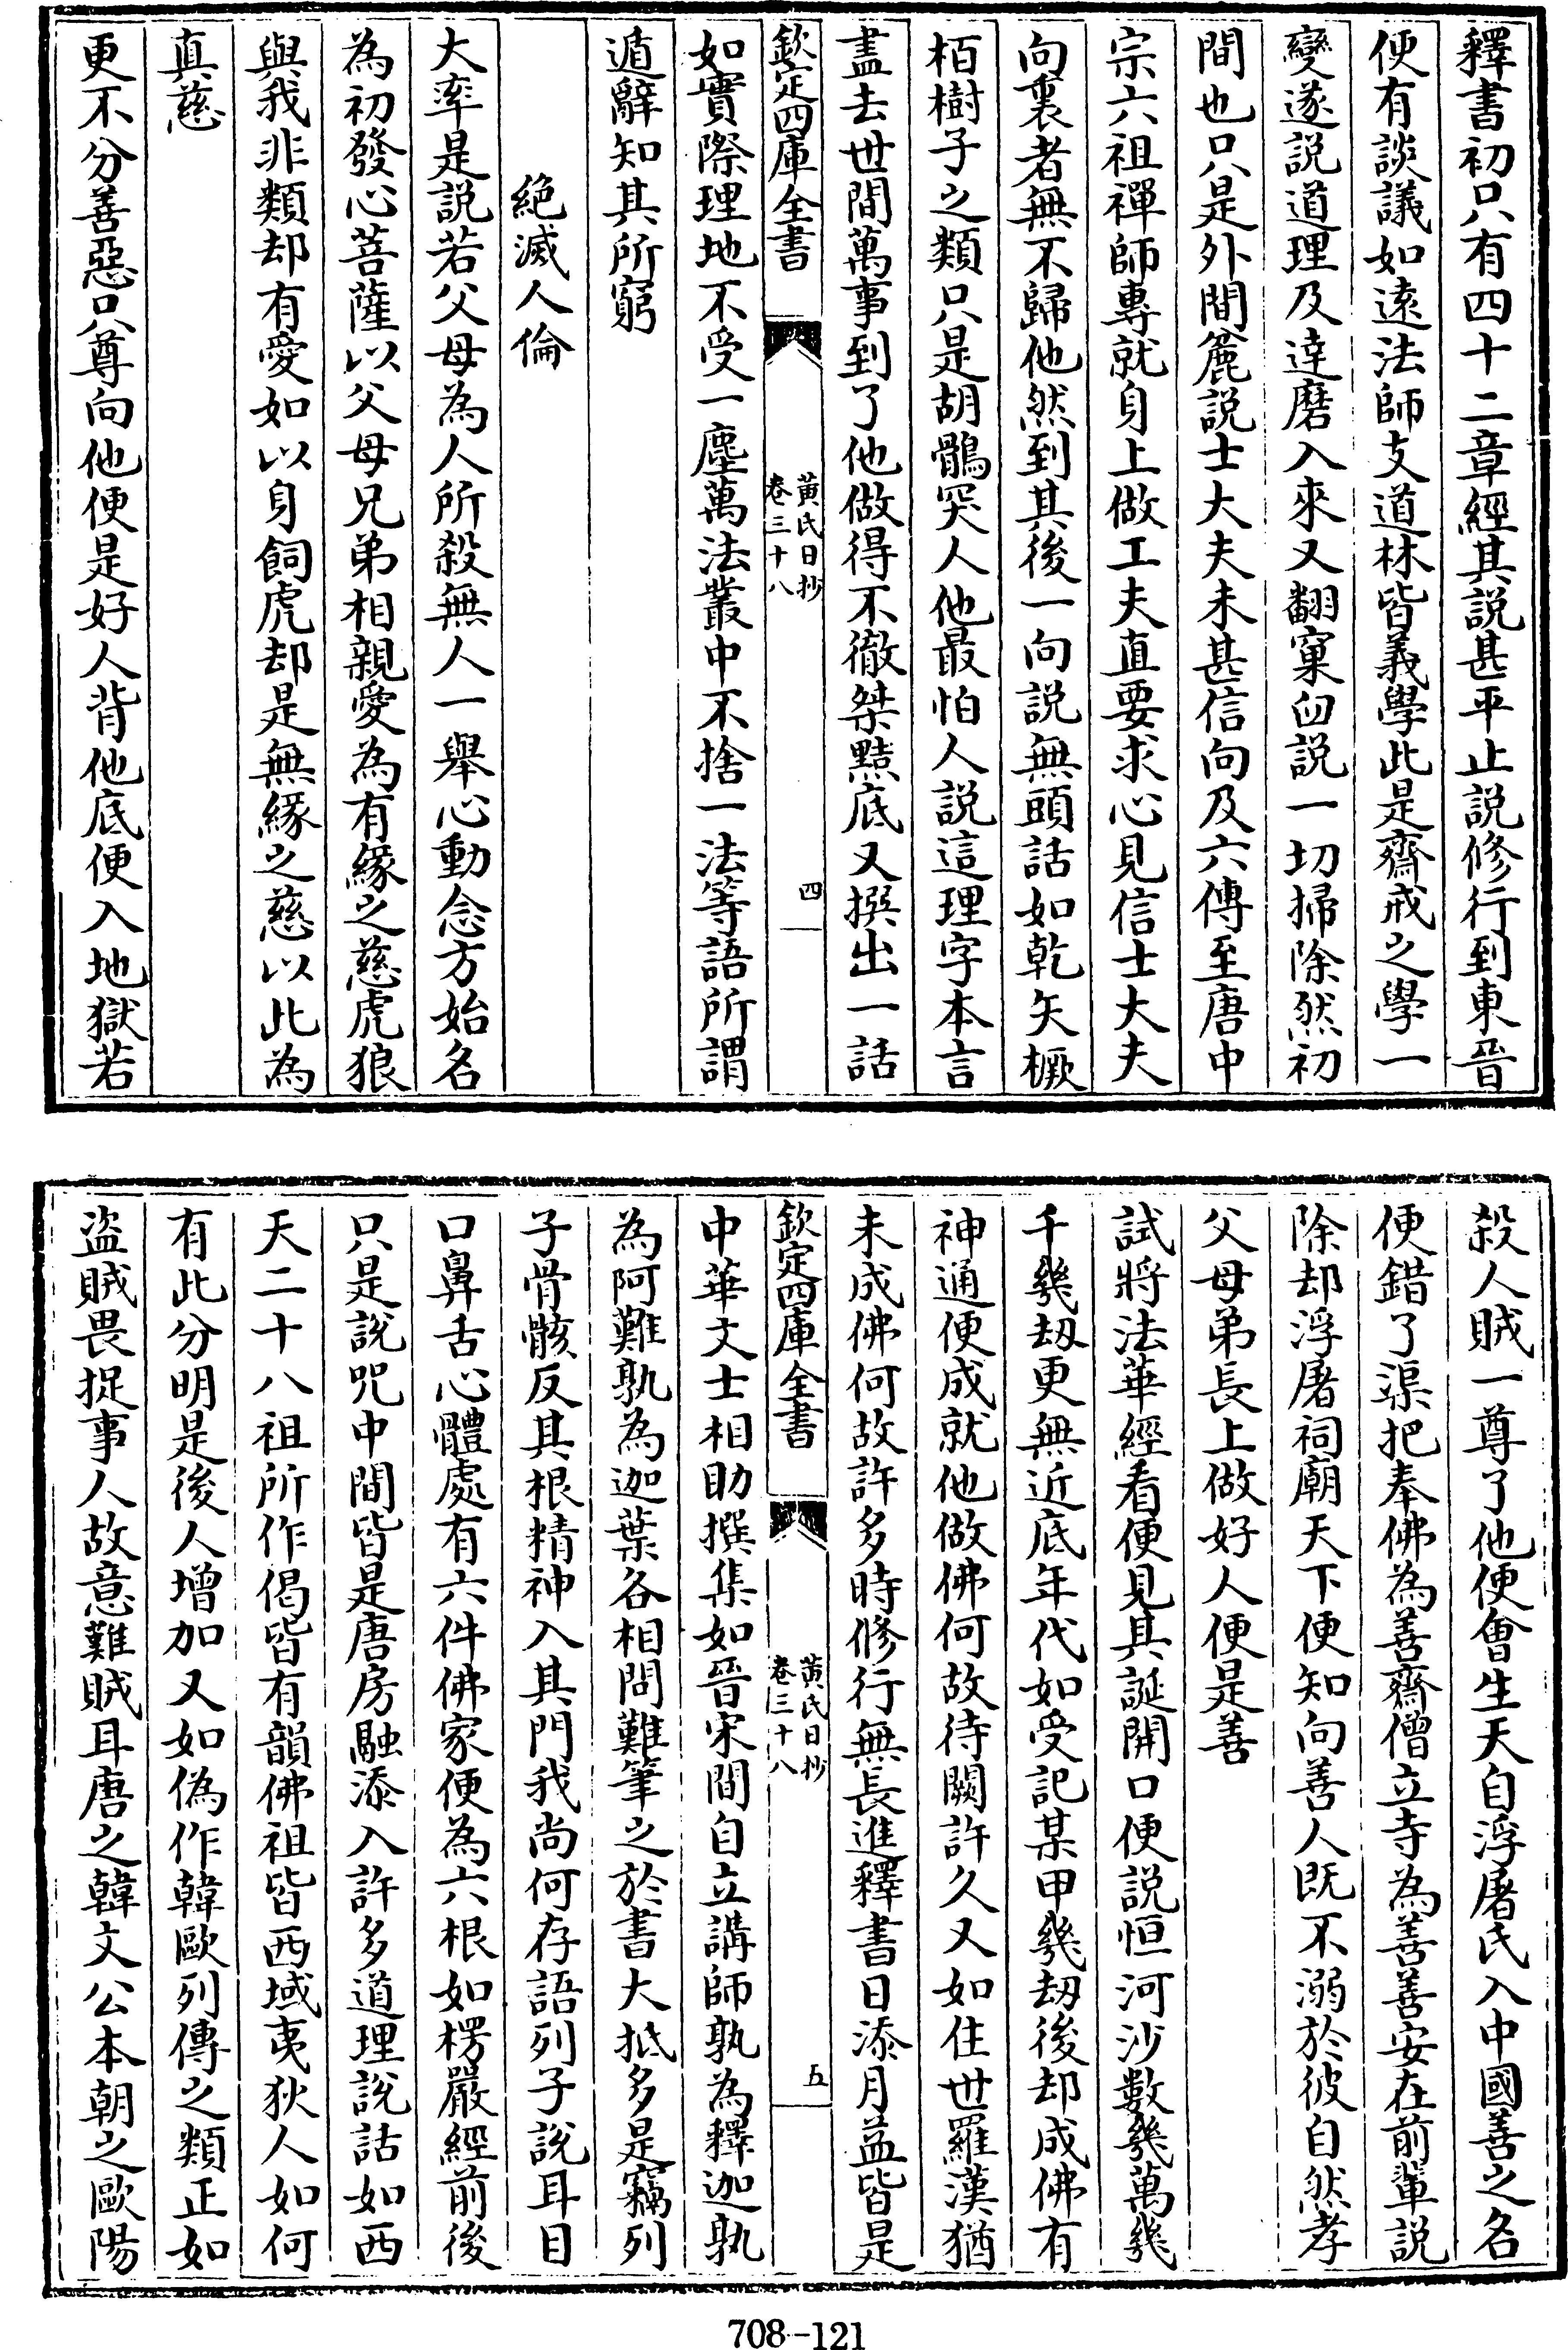 釋書初只有四十二章經其説甚平止説修行到東晉
便有談議如逺法師支道林皆義學此是齋戒之學一
變遂説道理及達磨入來又翻窠臼説一切掃除然初
間也只是外間麄説士大夫未甚信向及六傳至唐中
宗六祖禪師專就身上做工夫直要求心見信士大夫
向裏者無不歸他然到其後一向説無頭話如乾矢橛
栢樹子之類只是胡鶻突人他最怕人説這理字本言
盡去世間萬事到了他做得不徹桀黠底又撰出一話
欽定四庫全書
黄氏日抄
卷三十八
四
如實際理地不受一塵萬法叢中不捨一法等語所謂
遁辭知其所窮
絶滅人倫
大率是説若父母為人所殺無人一舉心動念方始名
為初發心菩薩以父母兄弟相親愛為有緣之慈虎狼
與我非類却有愛如以身飼虎却是無緣之慈以此為
真慈
更不分善惡只尊向他便是好人背他底便入地獄若
殺人賊一尊了他便會生天自浮屠氏入中國善之名
便錯了渠把奉佛為善齋僧立寺為善善安在前輩説
除却浮屠祠廟天下便知向善人既不溺於彼自然孝
父母弟長上做好人便是善
試將法華經看便見其誕開口便説恒河沙數幾萬幾
千幾刼更無近底年代如受記某甲幾刼後却成佛有
神通便成就他做佛何故待闕許久又如住世羅漢猶
未成佛何故許多時修行無長進釋書日添月益皆是
欽定四庫全書
黄氏日抄
卷三十八
五
中華文士相助撰集如晉宋間自立講師孰為釋迦孰
為阿難孰為迦葉各相問難筆之於書大抵多是竊列
子骨骸反其根精神入其門我尚何存語列子説耳目
口鼻舌心體處有六件佛家便為六根如楞嚴經前後
只是説咒中間皆是唐房融添入許多道理説話如西
天二十八祖所作偈皆有韻佛祖皆西域夷狄人如何
有此分明是後人增加又如偽作韓歐列傳之類正如
盗賊畏捉事人故意難賊耳唐之韓文公本朝之歐陽
708-121